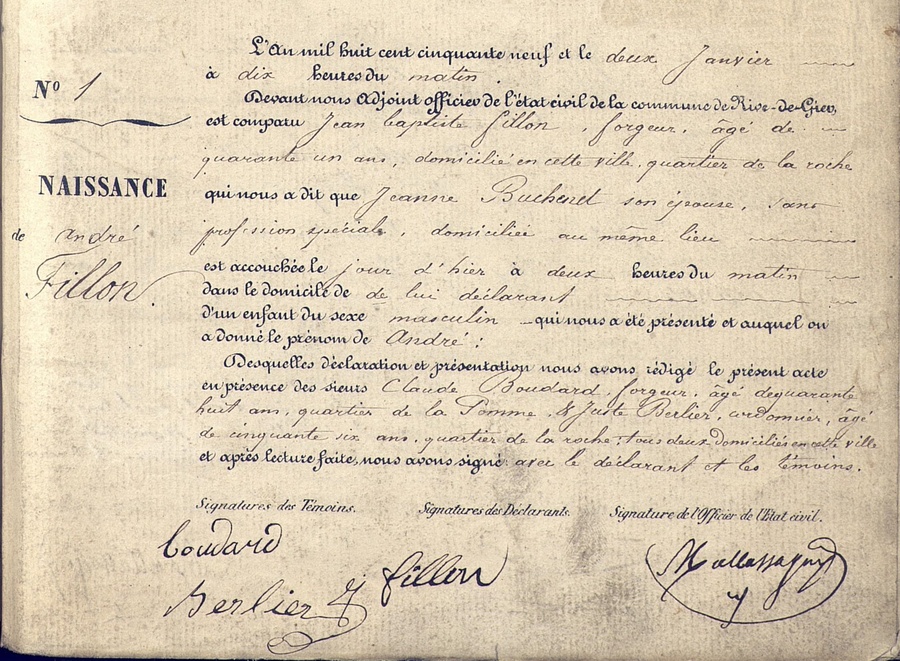 Nº 1
NAISSANCE
de André
Fillon.
L'An mil huit cent cinquante neuf et le deux Janvier
à dix heures du matin.
Devant nous Adjoint officier de l'état civil de la commune de Rive-de-Gier,
est comparu Jean baptiste fillon, forgeur, âgé de
quarante un ans, domicilié en cette ville, quartier de la roche
qui nous a dit que Jeanne Buchenet son épouse, sans
profession spéciale, domiciliée au même lieu
est accouchée le jour d'hier à deux heures du matin
dans le domicile de de lui déclarant
d'un enfant du sexe masculin qui nous a été présenté et auquel on
a donné le prénom de André:
Desquelles déclaration et présentation nous avons rédigé le présent acte
en présence des sieurs Claude Boudard, forgeur, âgé de quarante
huit ans, quartier de la Pomme, & Juste Berlier, cordonnier, âgé
de cinquante six ans, quartier de la roche; tous deux domiciliés en cette ville
et après lecture faite, nous avons signé avec le déclarant et les témoins.
Signatures des Témoins. Signatures des Déclarants. Signature de l'Officier de l'Etat civil.
boudard
Berlier fillon